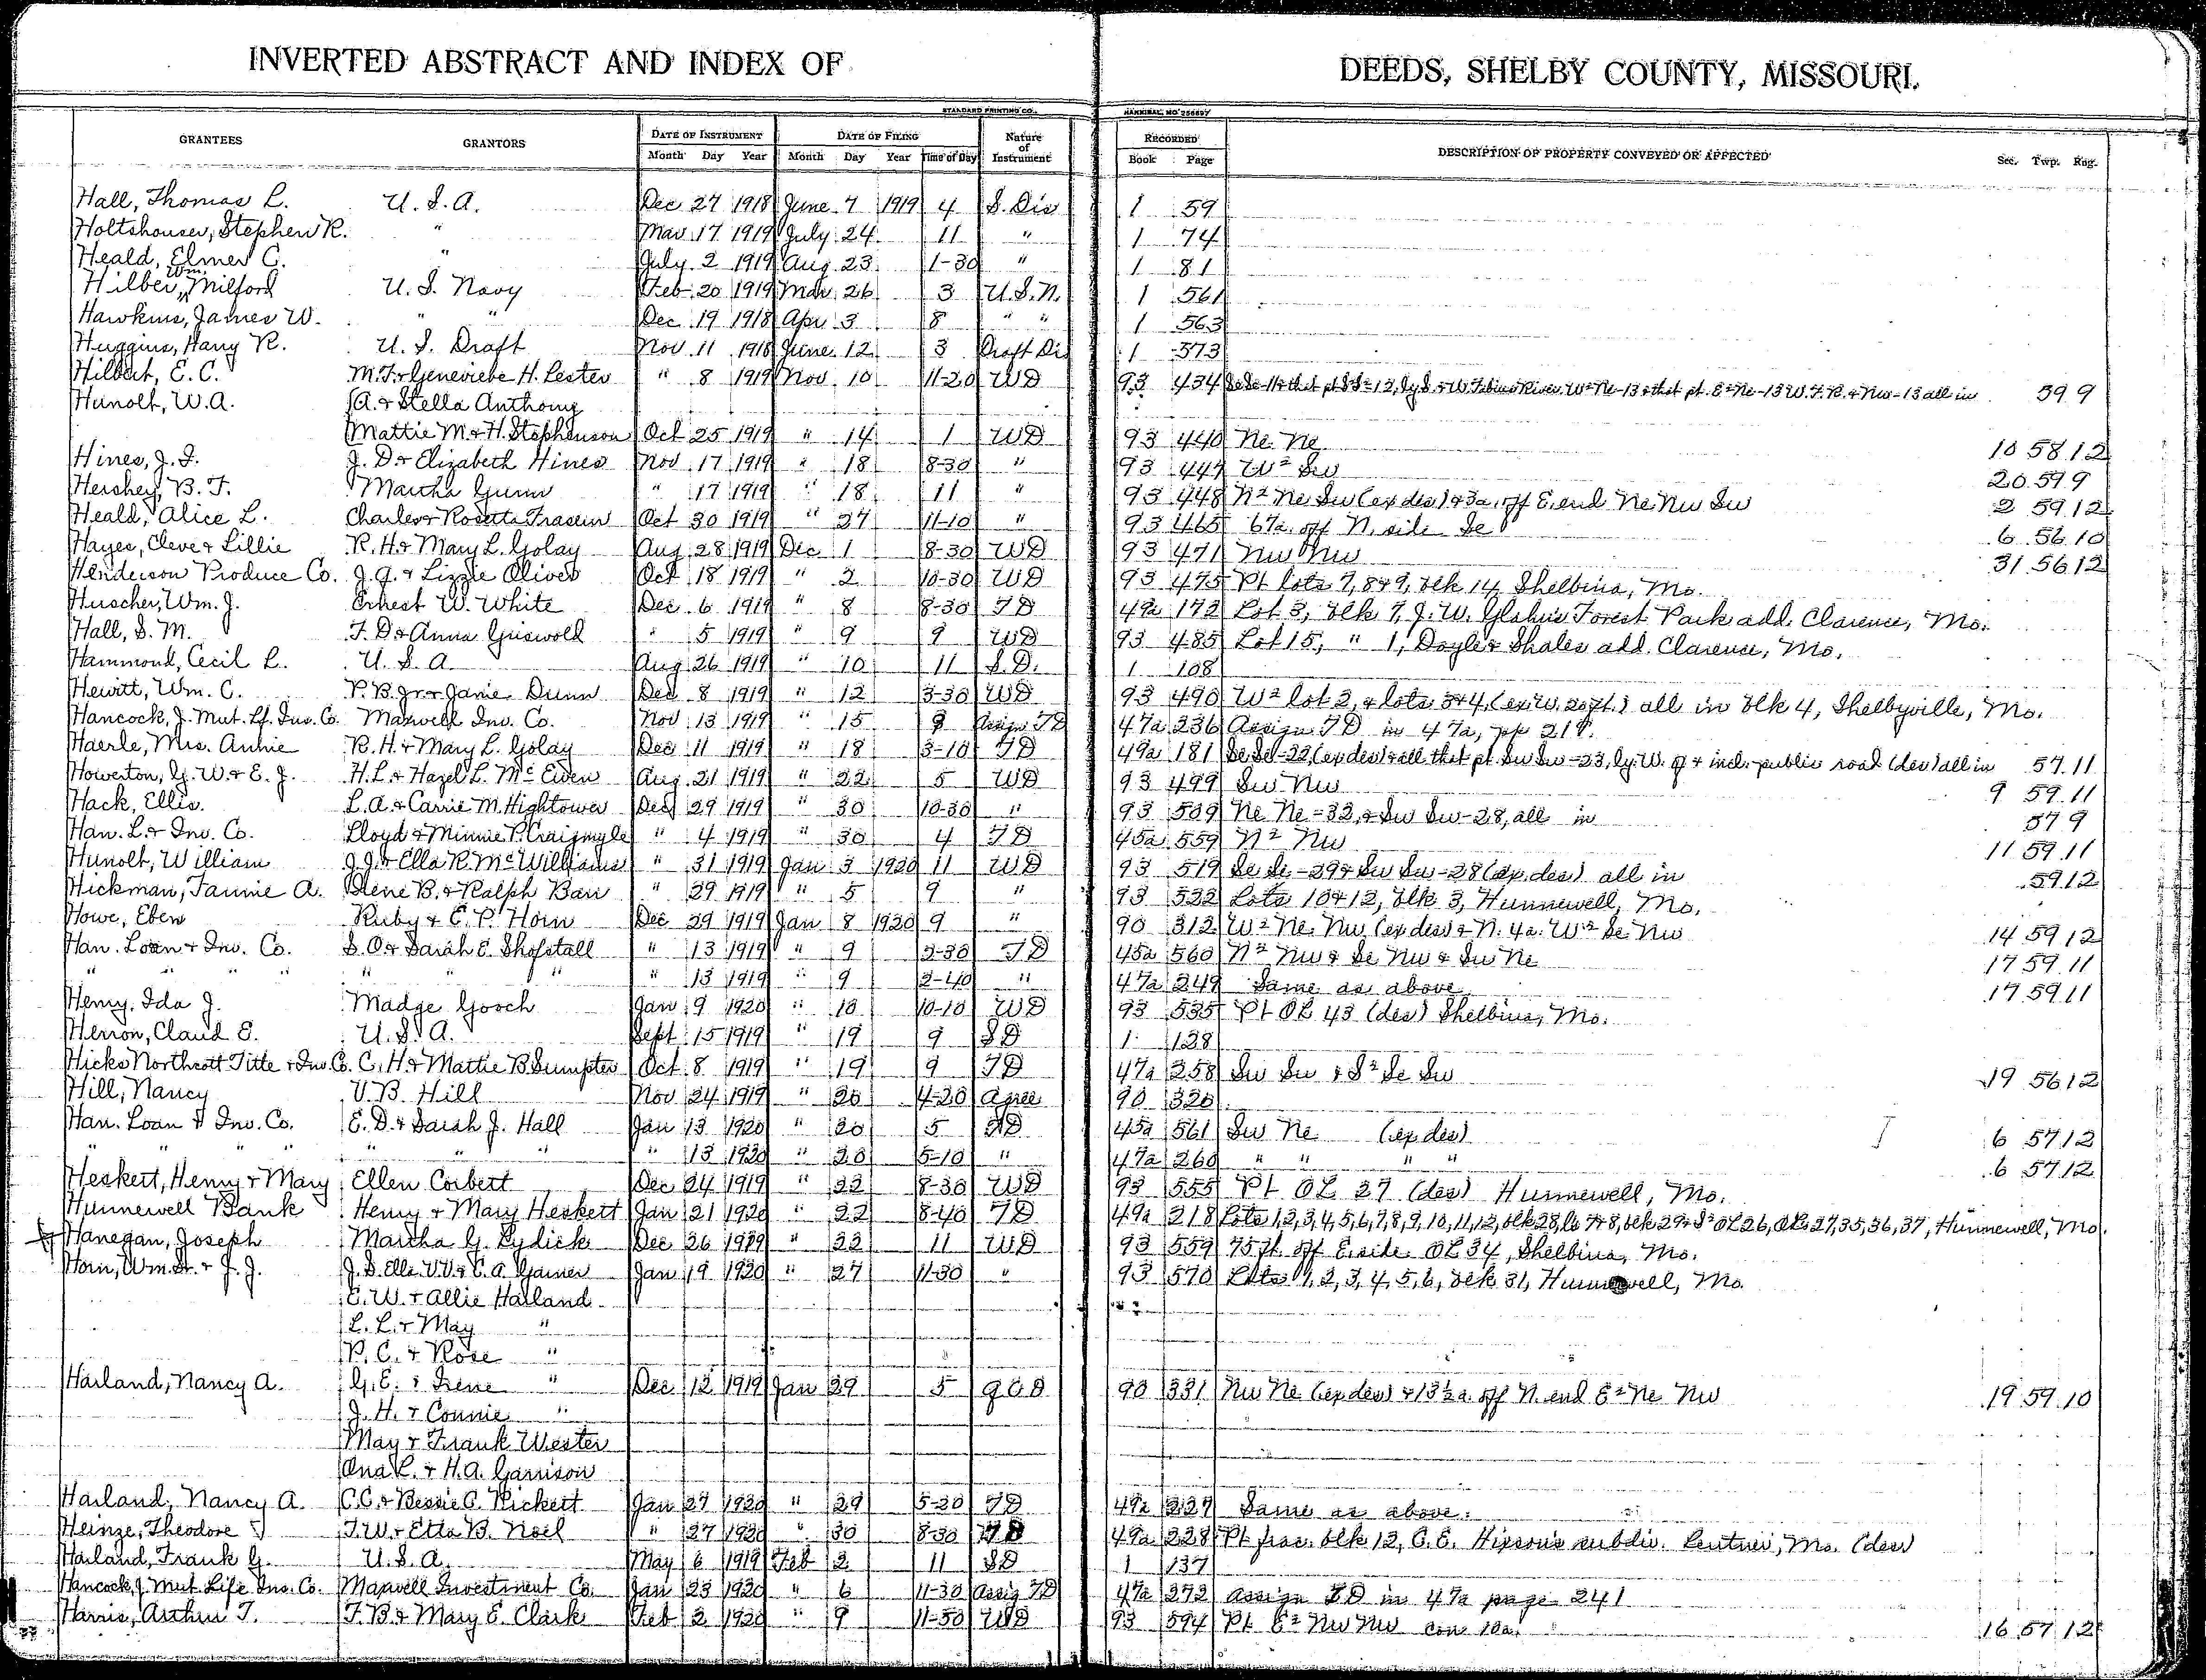 INVERTED ABSTRACT AND INDEX OF DEEDS, SHELBY COUNTY, MISSOURI.
STANDARD PRINTING CO. HANNIBAL, MO
GRANTEES GRANTORS DATE OF INSTRUMENT DATE OF FILING Nature of Instrument RECORDED DESCRIPTION OF PROPERTY CONVEYED OR AFFECTED Sec. Twp. Rng.
Month Day Year Month Day Year Time of Day Book Page
Hall, Thomas L. U.S.A. Dec 27 1918 June 7 1919 4 S. Dis 1 59
Holtshouser, Stephen R. " Mar 17 1919 July 24 11 " 1 74
Heald, Elmer C. " July 2 1919 Aug 23 1-30 " 1 81
Hilber, Wm. Milford U.S. Navy Feb 20 1919 Mar 26 3 U.S.N. 1 561
Hawkins, James W. " " Dec 19 1918 Apr 3 8 " " 1 563
Huggins, Harry R. U.S. Draft Nov 11 1918 June 12 3 Draft Dis 1 573
Hilbert, E. C. M.F. & Genevieve H. Lester " 8 1919 Nov 10 11-20 WD 93 434 W² Ne-13 & that pt. E² Ne-13 W. F. R. & Nw-13 all in 59 9
Hunolt, W.A. A. & Stella Anthony
Mattie M. & H. Stephenson Oct 25 1919 " 14 1 WD 93 440 Ne Ne 10 58 12
Hines, J. F. J. D. & Elizabeth Hines Nov 17 1919 " 18 8-30 " 93 447 W² Sw 20 59 9
Hershey, B. F. Martha Gunn " 17 1919 " 18 11 " 93 448 N² Ne Sw (ex des) & 3a. off E. end Ne Nw Sw 2 59 12
Heald, Alice L. Charles & Rosetta Frasein Oct 30 1919 " 27 11-10 " 93 465 67a. off N. side Se 6 56 10
Hayes, Cleve & Lillie R. H. & Mary L. Golay Aug 28 1919 Dec 1 8-30 WD 93 471 Nw Nw 31 56 12
Henderson Produce Co. J. A. & Lizzie Oliver Oct 18 1919 " 2 10-30 WD 93 475 Pt lots 7, 8 & 9, blk 14, Shelbina, Mo.
Huscher, Wm. J. Ernest W. White Dec 6 1919 " 8 8-30 TD 49a 172 Lot 3, blk 7, J. W. Glahn's Forest Park add. Clarence, Mo.
Hall, S. M. F. D. & Anna Griswold " 5 1919 " 9 9 WD 93 485 Lot 15, " 1, Doyle & Shales add. Clarence, Mo.
Hammond, Cecil L. U.S.A. Aug 26 1919 " 10 11 S.D. 1 108
Hewitt, Wm. C. P. B. Jr. & Janie Dunn Dec 8 1919 " 12 3-30 WD 93 490 W² lot 2, & lots 3 & 4, (ex W. 20 ft.) all in blk 4, Shelbyville, Mo.
Hancock, J. Mut. Lf. Ins. Co. Maxwell Inv. Co. Nov 13 1919 " 15 9 Assign TD 47a 236 Assign TD in 47a, pp 217.
Haerle, Mrs. Annie R. H. & Mary L. Golay Dec 11 1919 " 18 3-10 TD 49a 181 Se Se-22 (ex des) & all that pt. Sw Sw-23, lg. W. of & incl. public road (des) all in 57 11
Howerton, G. W. & E. J. H. L. & Hazel L. McEwen Aug 21 1919 " 22 5 WD 93 499 Sw Nw 9 59 11
Hack, Ellis. L. A. & Carrie M. Hightower Dec 29 1919 " 30 10-30 " 93 509 Ne Ne-32, & Sw Sw-28, all in 57 9
Han. L. & Inv. Co. Lloyd & Minnie P. Craigmyle " 4 1919 " 30 4 TD 45a 559 N² Nw 11 59 11
Hunolt, William J. J. & Ella R. McWilliams " 31 1919 Jan 3 1920 11 WD 93 519 Se Se-29 & Sw Sw-28 (ex des) all in 59 12
Hickman, Fannie A. Irene B. & Ralph Barr " 29 1919 " 5 9 " 93 522 Lots 10 & 12, blk 3, Hunnewell, Mo.
Howe, Eben Ruby & E. P. Horn Dec 29 1919 Jan 8 1920 9 " 90 312 W² Ne Nw (ex des) & N. 4a. W² Se Nw 14 59 12
Han. Loan & Inv. Co. S. O. & Sarah E. Shofstall " 13 1919 " 9 2-30 TD 45a 560 N² Nw & Se Nw & Sw Ne 17 59 11
" " " " " " " " 13 1919 " 9 2-40 " 47a 249 Same as above 17 59 11
Henry, Ida J. Madge Gooch Jan 9 1920 " 10 10-10 WD 93 535 Pt OL 43 (des) Shelbina, Mo.
Herron, Claud E. U.S.A. Sept 15 1919 " 19 9 SD 1 128
Hicks Northcott Title & Inv. Co. C. H. & Mattie B. Sumpter Oct 8 1919 " 19 9 TD 47a 258 Sw Sw & S² Se Sw 19 56 12
Hill, Nancy V. B. Hill Nov 24 1919 " 20 4-20 Agree 90 320
Han. Loan & Inv. Co. E. D. & Sarah J. Hall Jan 13 1920 " 20 5 TD 45a 561 Sw Ne (ex des) 6 57 12
" " " " " " " " 13 1920 " 20 5-10 " 47a 260 " " " " 6 57 12
Heskert, Henry & Mary Ellen Corbert Dec 24 1919 " 22 8-30 WD 93 555 Pt OL 27 (des) Hunnewell, Mo.
Hunnewell Bank Henry & Mary Heskert Jan 21 1920 " 22 8-40 TD 49a 218 Lots 1,2,3,4,5,6,7,8,9,10,11,12, blk 28, lo 7 & 8, blk 29 & S² OL 26, OLs 27, 35, 36, 37, Hunnewell, Mo.
Hanegan, Joseph Martha G. Lydick Dec 26 1919 " 22 11 WD 93 559 75 ft. off E. side OL 34, Shelbina, Mo.
Horn, Wm. Sr. & J. J. J. S. Ella V.V. & C. A. Garner Jan 19 1920 " 27 11-30 " 93 570 Lots 1, 2, 3, 4, 5, 6, blk 31, Hunnewell, Mo.
E. W. & Allie Harland
L. L. & May "
P. C. & Rose "
Harland, Nancy A. G. E. & Irene " Dec 12 1919 Jan 29 5 QCD 90 331 Nw Ne (ex des) & 13½a. off N. end E² Ne Nw 19 59 10
J. H. & Connie "
May & Frank Wester
Ona L. & H. A. Garrison
Harland, Nancy A. C. C. & Bessie C. Rickert Jan 27 1920 " 29 5-20 TD 49a 227 Same as above.
Heinze, Theodore J. T. W. & Etta B. Noel " 27 1920 " 30 8-30 TD 49a 228 Pt frac. blk 12, C. E. Hixson's subdiv. Lentner, Mo. (des)
Harland, Frank G. U.S.A. May 6 1919 Feb 2 11 SD 1 137
Hancock, J. Mut. Life Ins. Co. Maxwell Investment Co. Jan 23 1920 " 6 11-30 Assig TD 47a 272 Assign TD in 47a page 241
Harris, Arthur T. F. B. & Mary E. Clark Feb 2 1920 " 9 11-50 WD 93 594 Pt E² Nw Nw con 10a. 16 57 12